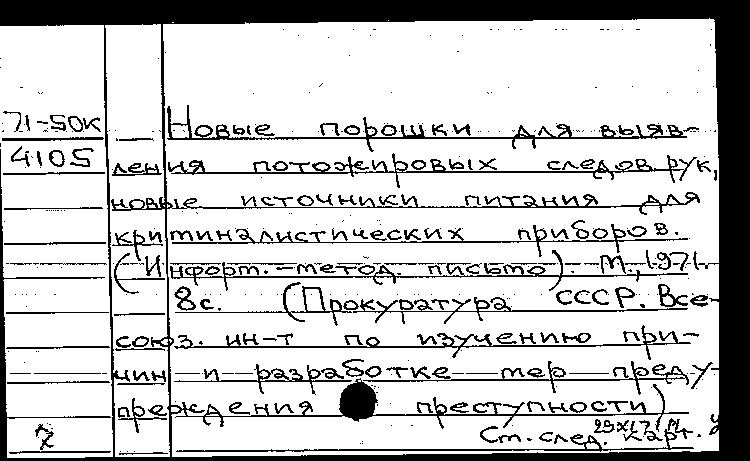 71-50к
4105
Новые порошки для выяв-
ления потожировых следов рук,
новые источники питания для
криминалистических приборов.
(Информ.-метод. письмо) М., 1971.
8с. (Прокуратура СССР. Все-
союз. ин-т по изучению при-
чин и разработке мер преду-
преждения преступности)
См. след. карт.